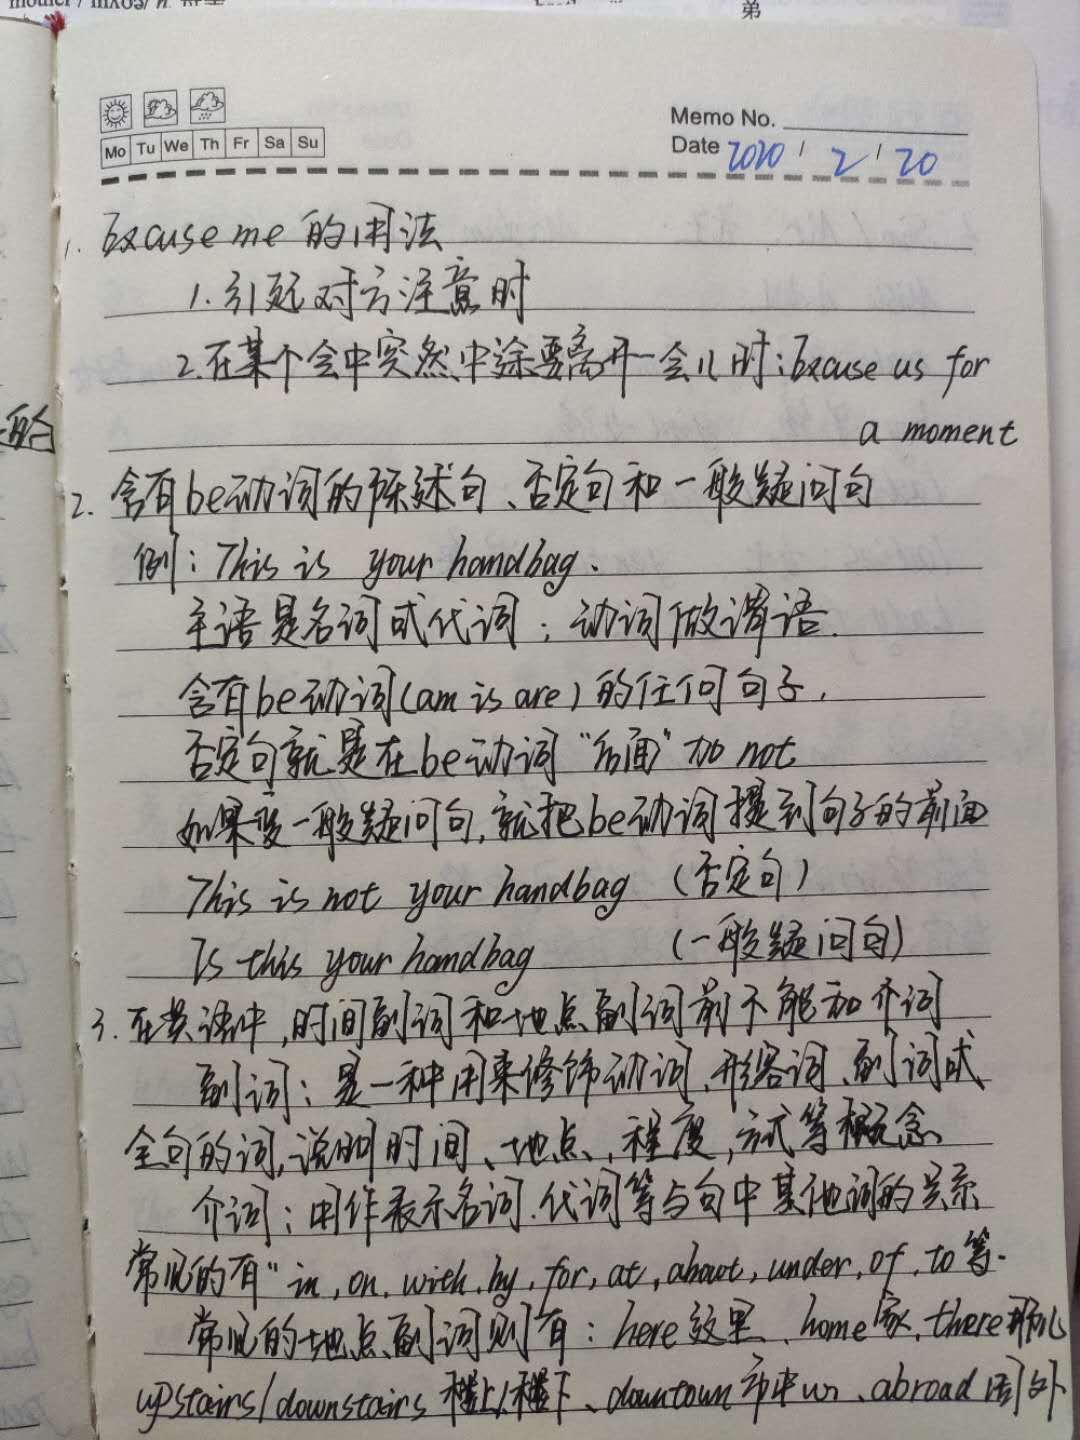 弟
Mo Tu We Th Fr Sa Su
Memo No.
Date 2020 / 2 / 20
1. Excuse me 的用法
1. 引起对方注意时
2. 在某个会中突然中途要离开一会儿时: Excuse us for
a moment
2. 含有be动词的陈述句、否定句和一般疑问句
例: This is your handbag.
主语是名词或代词; 动词做谓语.
含有be动词(am is are)的任何句子,
否定句就是在be动词“后面”加 not
如果变一般疑问句,就把be动词提到句子的前面
This is not your handbag (否定句)
Is this your handbag (一般疑问句)
3. 在英语中,时间副词和地点副词前不能和介词
副词: 是一种用来修饰动词、形容词、副词或
全句的词,说明时间、地点、程度,方式等概念
介词: 用作表示名词.代词等与句中其他词的关系
常见的有“in, on, with, by, for, at, about, under, of, to 等.
常见的地点副词则有: here这里、home家, there那儿
upstairs/downstairs 楼上/楼下、downtown 市中心、abroad 国外